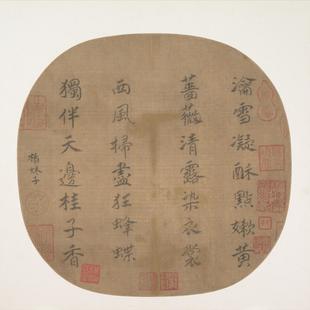 瀹雪凝酥點嫩黃
薔薇清露染衣裳
西風掃盡狂蜂蝶
獨伴天邊桂子香
楊妹子